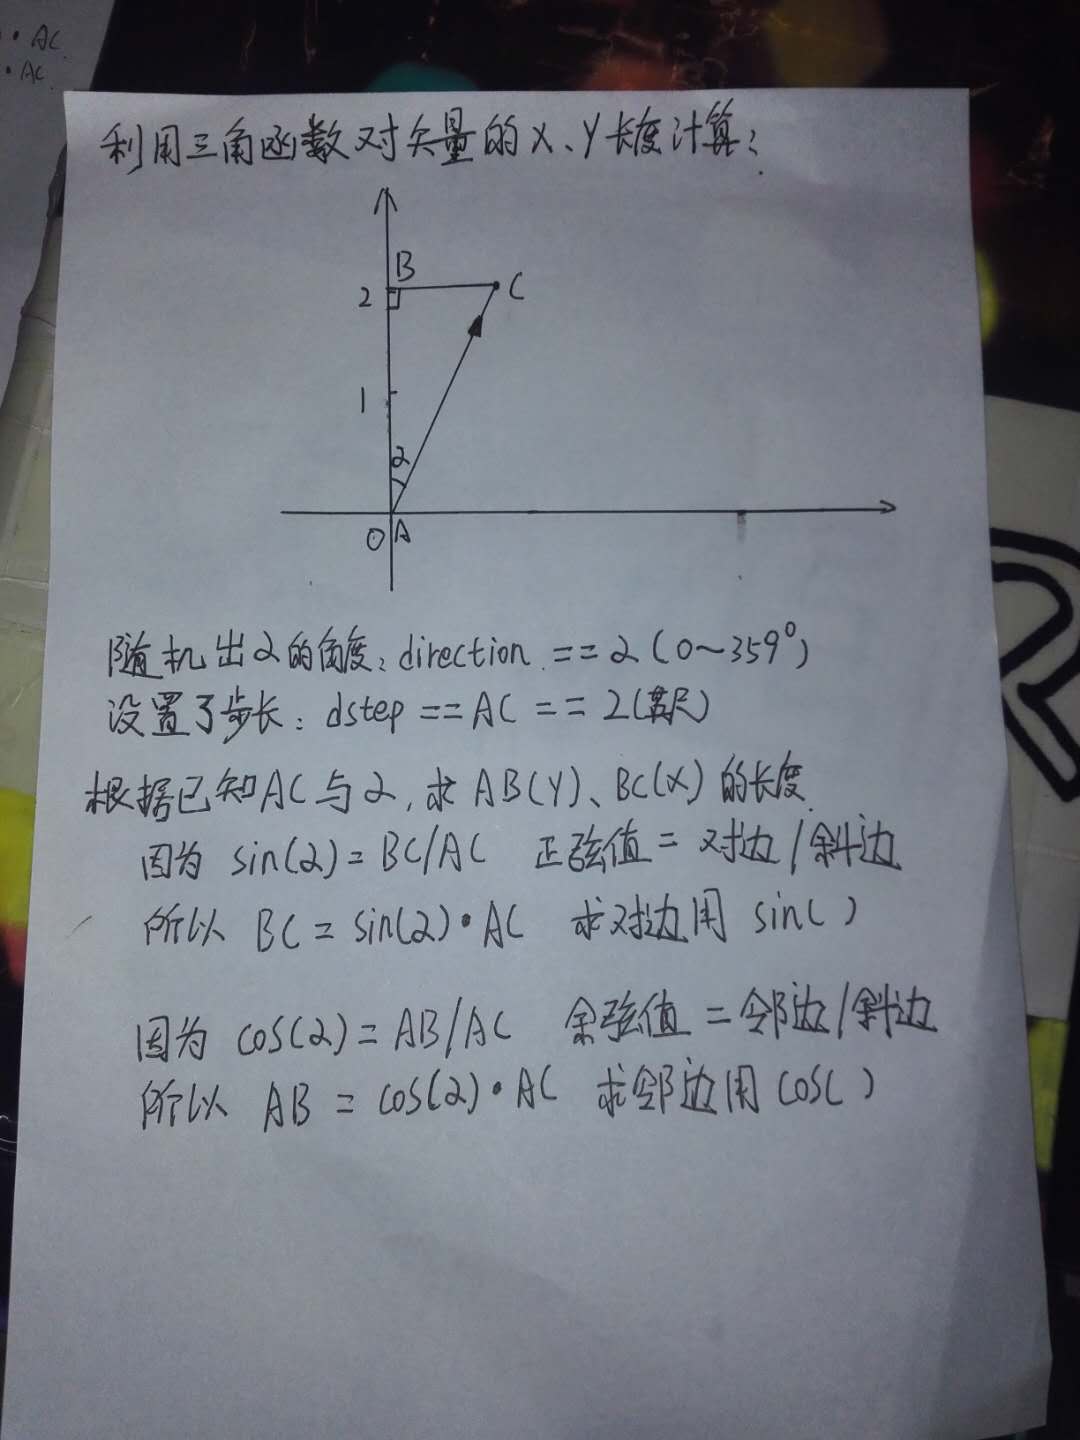 • AC
• AC
利用三角函数对矢量的X、Y长度计算:
B
C
2
1
α
0
A
随机出α的角度: direction == α (0~359°)
设置了步长: dstep == AC == 2(英尺)
根据已知AC与α,求AB(Y)、BC(X)的长度.
因为 sin(α) = BC/AC 正弦值 = 对边/斜边
所以 BC = sin(α)·AC 求对边用 sin( )
因为 cos(α) = AB/AC 余弦值 = 邻边/斜边
所以 AB = cos(α)·AC 求邻边用 cos( )